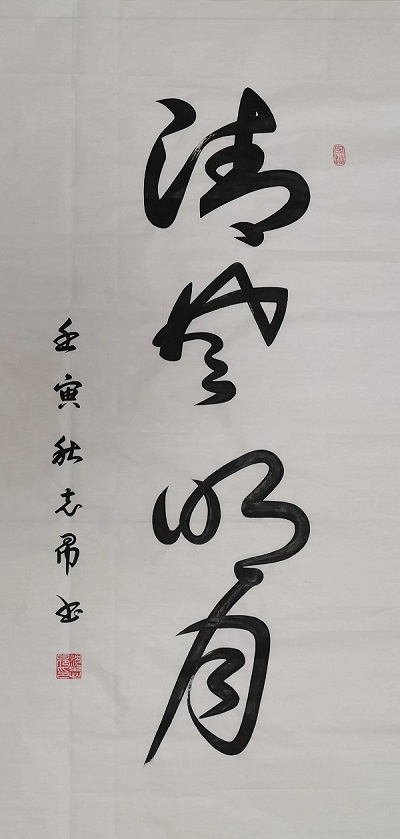 清风明月
壬寅秋志帚书